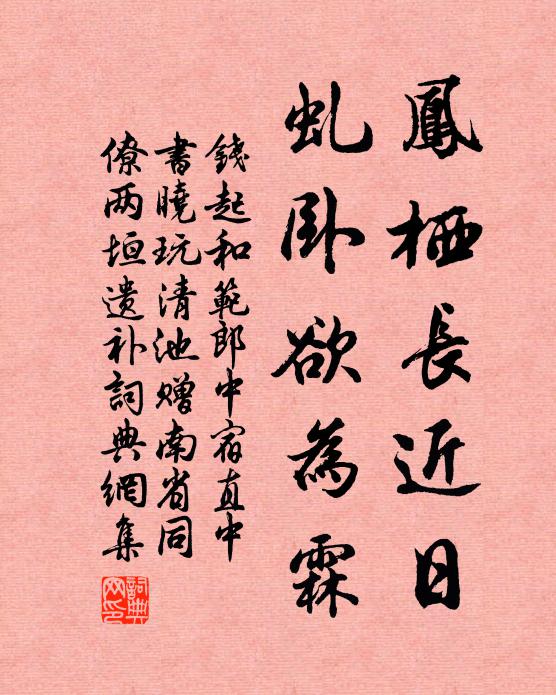 鳳栖長近日
虬卧欲為霖
錢起和範郎中宿直中
書曉玩清池赠南省同
僚两垣遗补詞典網集
詞典网印